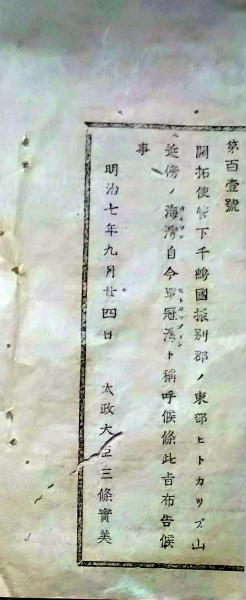 第百壹號
開拓使管下千島國振別郡ノ東部ヒトカツプ山
近傍ノ海灣自今單冠灣ト稱呼候條此旨布告候
事
明治七年九月廿四日 太政大臣三條實美